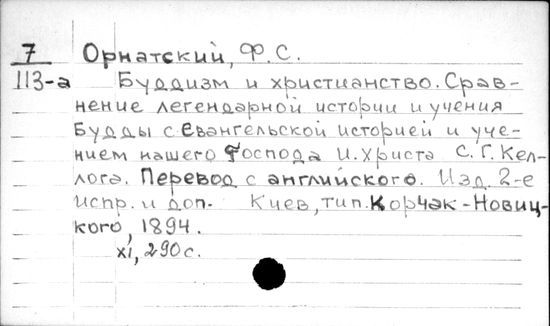 7 Орнатский, Ф.С.
113-а Буддизм и христианство. Срав-
нение легендарной истории и учения
Будды с Евангельской историей и уче-
нием нашего Господа И. Христа С.Г. Кел-
лога. Перевод с английского. Изд. 2-е
испр. и доп. Киев, тип. Корчак-Новиц-
кого, 1894.
XI, 290 с.